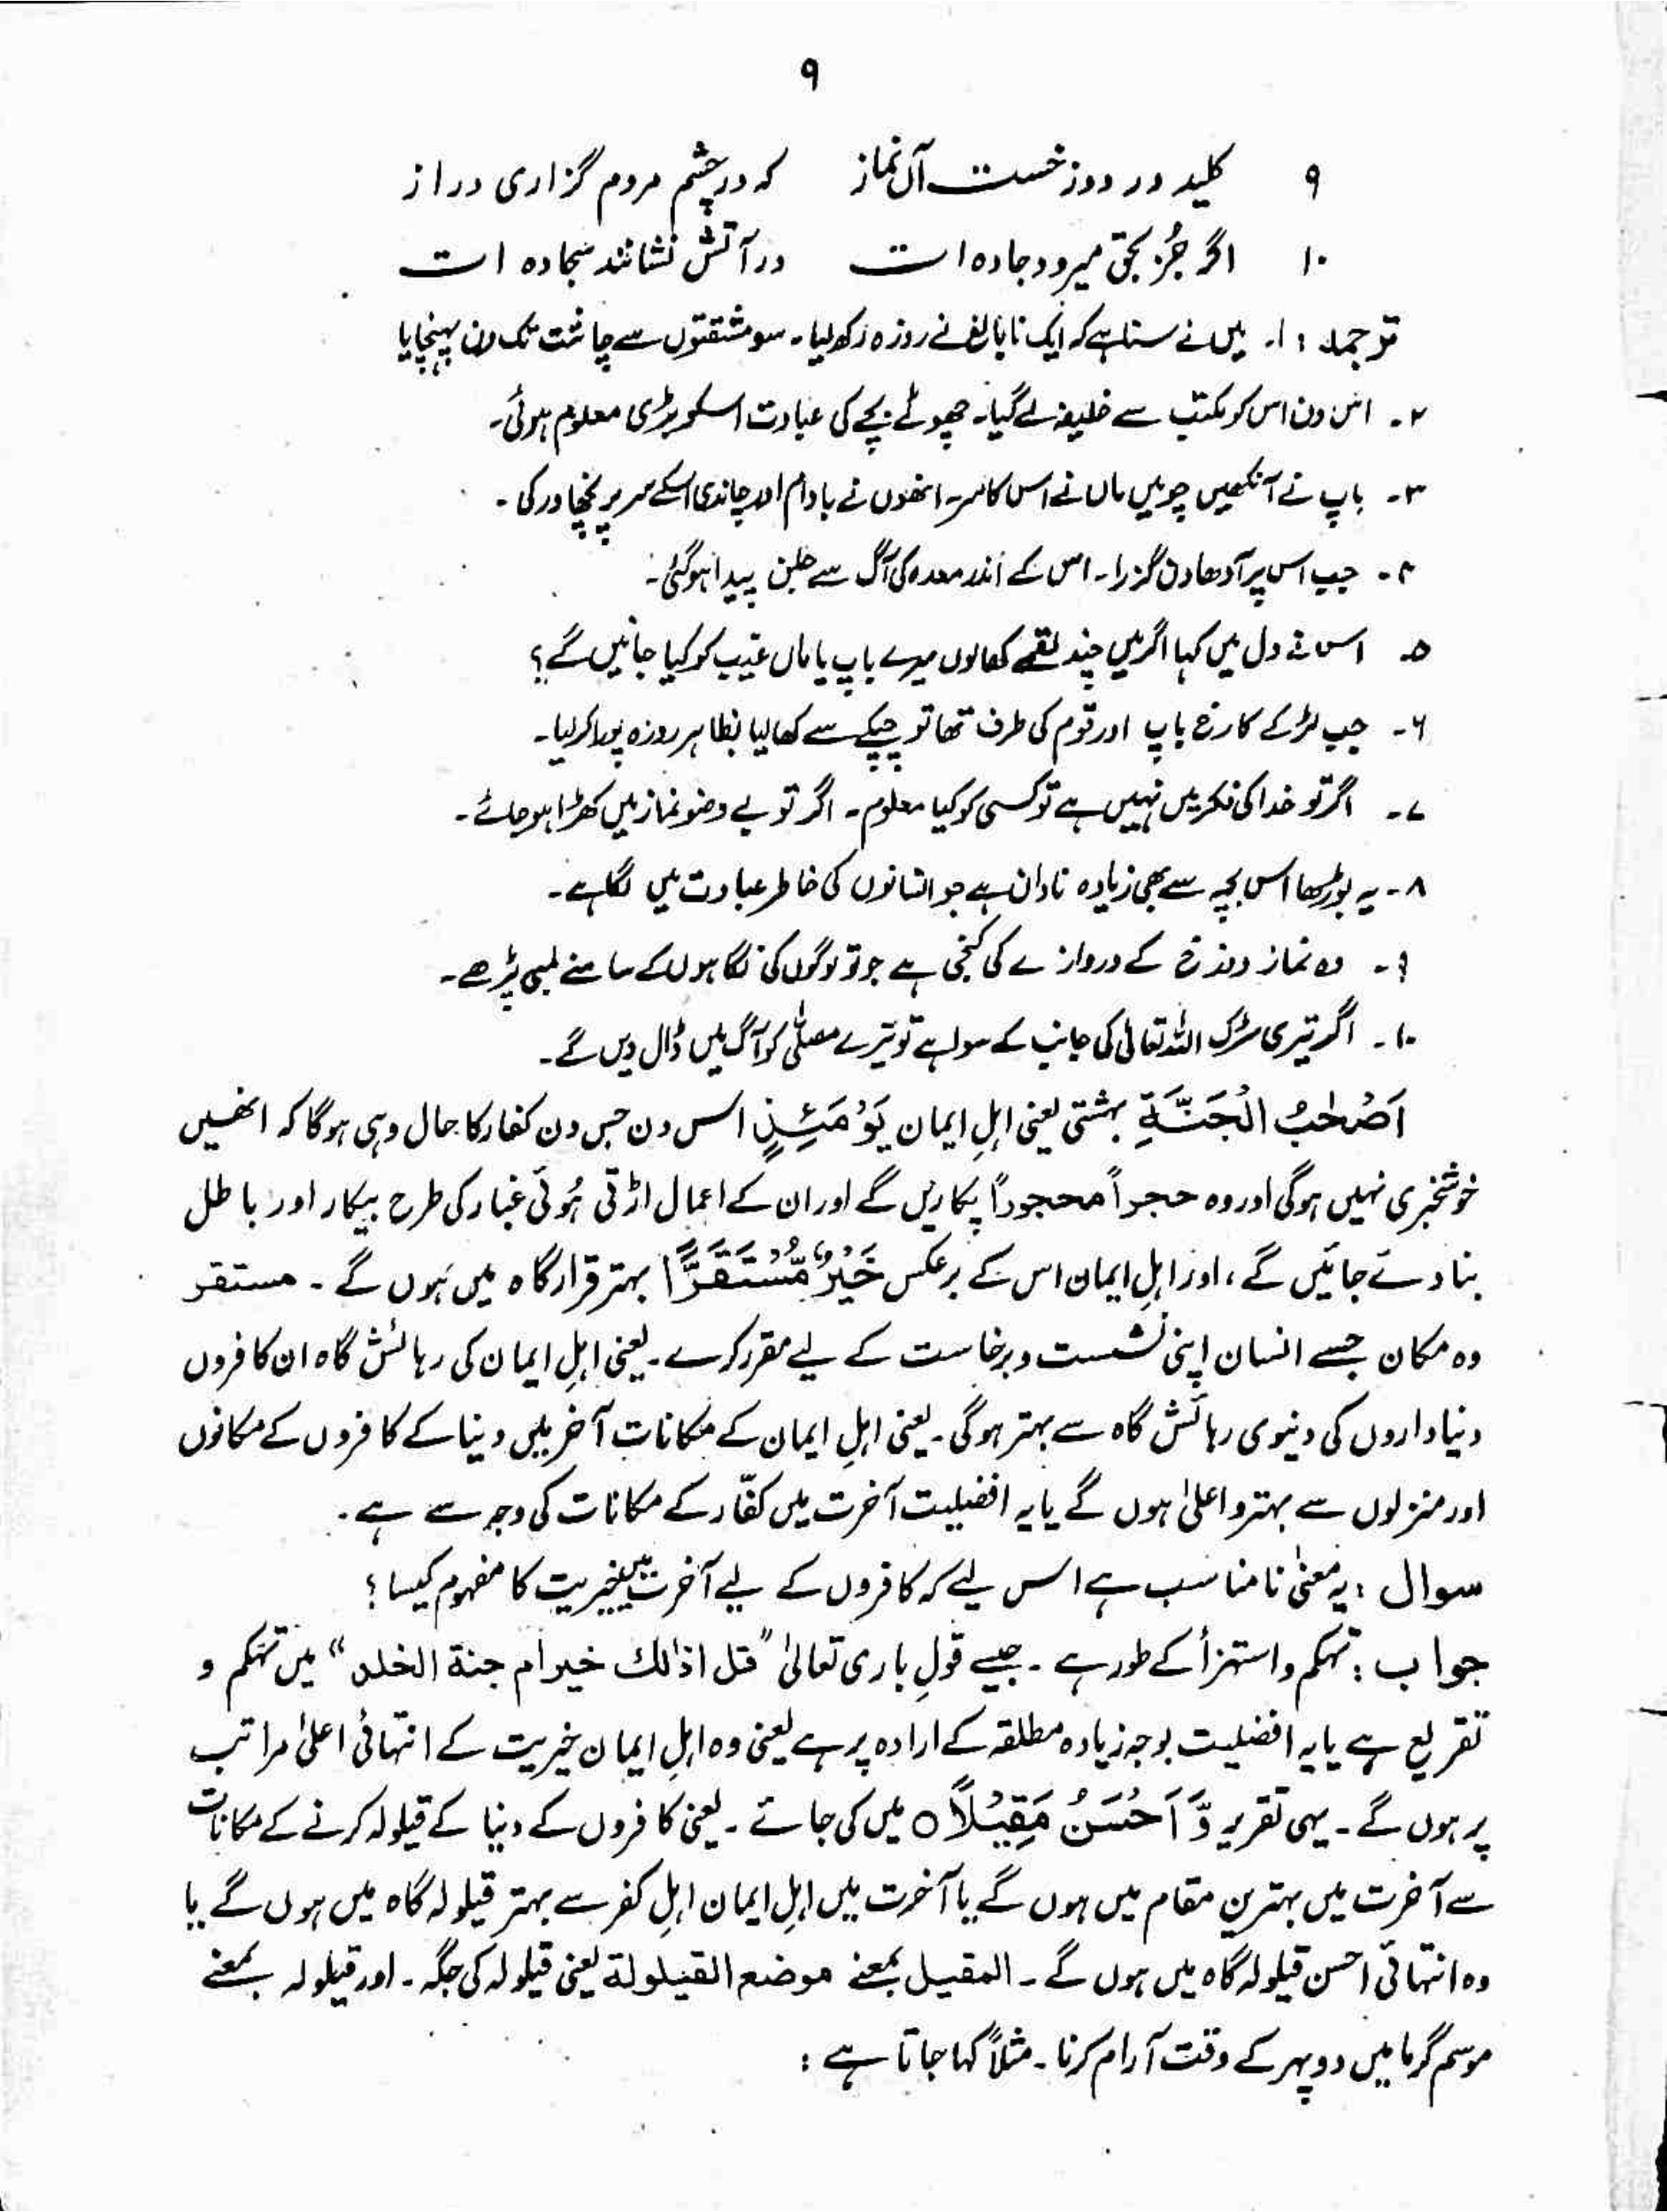 ۹
۹ کلید در دوزخست آں نماز که در چشم مردم گزاری دراز
۱۰ اگر جُز بحق میرود جاده ات در آتش نشانند سجاده ات
ترجمہ : ۱۔ میں نے سنا ہے کہ ایک نابالغ نے روزہ رکھ لیا۔ سو مشقتوں سے چاشت تک دن پہنچایا
۲۔ اس دن اس کو مکتب سے خلیفہ لے گیا۔ چھوٹے بچے کی عبادت اسکو بڑی معلوم ہوئی۔
۳۔ باپ نے آنکھیں چومیں ماں نے اس کا سر۔ انھوں نے بادام اور چاندی اسکے سر پر نچھاور کی۔
۴۔ جب اس پر آدھا دن گزرا۔ اس کے اندر معدہ کی آگ سے جلن پیدا ہو گئی۔
۵۔ اس نے دل میں کہا اگر میں چند لقمے کھا لوں میرے باپ یا ماں غیب کو کیا جانیں گے؟
۶۔ جب لڑکے کا رخ باپ اور قوم کی طرف تھا تو چپکے سے کھا لیا بظاہر روزہ پورا کر لیا۔
۷۔ اگر تو خدا کی فکر میں نہیں ہے تو کسی کو کیا معلوم۔ اگر تو بے وضو نماز میں کھڑا ہو جائے۔
۸۔ یہ بوڑھا اس بچہ سے بھی زیادہ نادان ہے جو انسانوں کی خاطر عبادت میں لگا ہے۔
۹۔ وہ نماز دوزخ کے دروازے کی کنجی ہے جو تو لوگوں کی نگاہوں کے سامنے لمبی پڑھے۔
۱۰۔ اگر تیری سڑک اللہ تعالیٰ کی جانب کے سوا ہے تو تیرے مصلّٰی کو آگ میں ڈال دیں گے۔
اَصْحٰبُ الْجَنَّةِ بہشتی یعنی اہلِ ایمان يَوْمَئِذٍ اس دن جس دن کفار کا حال وہی ہوگا کہ انھیں
خوشخبری نہیں ہوگی اور وہ حجراً محجوراً پکاریں گے اور ان کے اعمال اڑتی ہُوئی غبار کی طرح بیکار اور باطل
بنا دئے جائیں گے، اور اہلِ ایمان اس کے برعکس خَيْرٌ مُّسْتَقَرًّا بہتر قرار گاہ میں ہوں گے ۔ مستقر
وہ مکان جسے انسان اپنی نشست و برخاست کے لیے مقرر کرے۔ یعنی اہلِ ایمان کی رہائش گاہ ان کافروں
دنیا داروں کی دنیوی رہائش گاہ سے بہتر ہوگی۔ یعنی اہلِ ایمان کے مکانات آخر میں دنیا کے کافروں کے مکانوں
اور منزلوں سے بہتر و اعلیٰ ہوں گے یا یہ افضلیت آخرت میں کفّار کے مکانات کی وجہ سے ہے۔
سوال : یہ معنیٰ نا مناسب ہے اس لیے کہ کافروں کے لیے آخرت میں خیریت کا مفہوم کیسا ؟
جواب : تہکم و استہزأ کے طور ہے ۔ جیسے قولِ باری تعالیٰ "قل اذالك خير ام جنة الخلد" میں تہکم و
تقریع ہے یا یہ افضلیت بوجہ زیادہ مطلقہ کے ارادہ پر ہے یعنی وہ اہلِ ایمان خیریت کے انتہائی اعلیٰ مراتب
پر ہوں گے ۔ یہی تقریر وَّ اَحْسَنُ مَقِيْلًا ○ میں کی جائے ۔ یعنی کافروں کے دنیا کے قیلولہ کرنے کے مکانات
سے آخرت میں بہترین مقام میں ہوں گے یا آخرت میں اہلِ ایمان اہلِ کفر سے بہتر قیلولہ گاہ میں ہوں گے یا
وہ انتہائی احسن قیلولہ گاہ میں ہوں گے ۔ المقیل بمعنے موضع القيلولة یعنی قیلولہ کی جگہ ۔ اور قیلولہ بمعنے
موسم گرما میں دوپہر کے وقت آرام کرنا ۔ مثلاً کہا جاتا ہے :